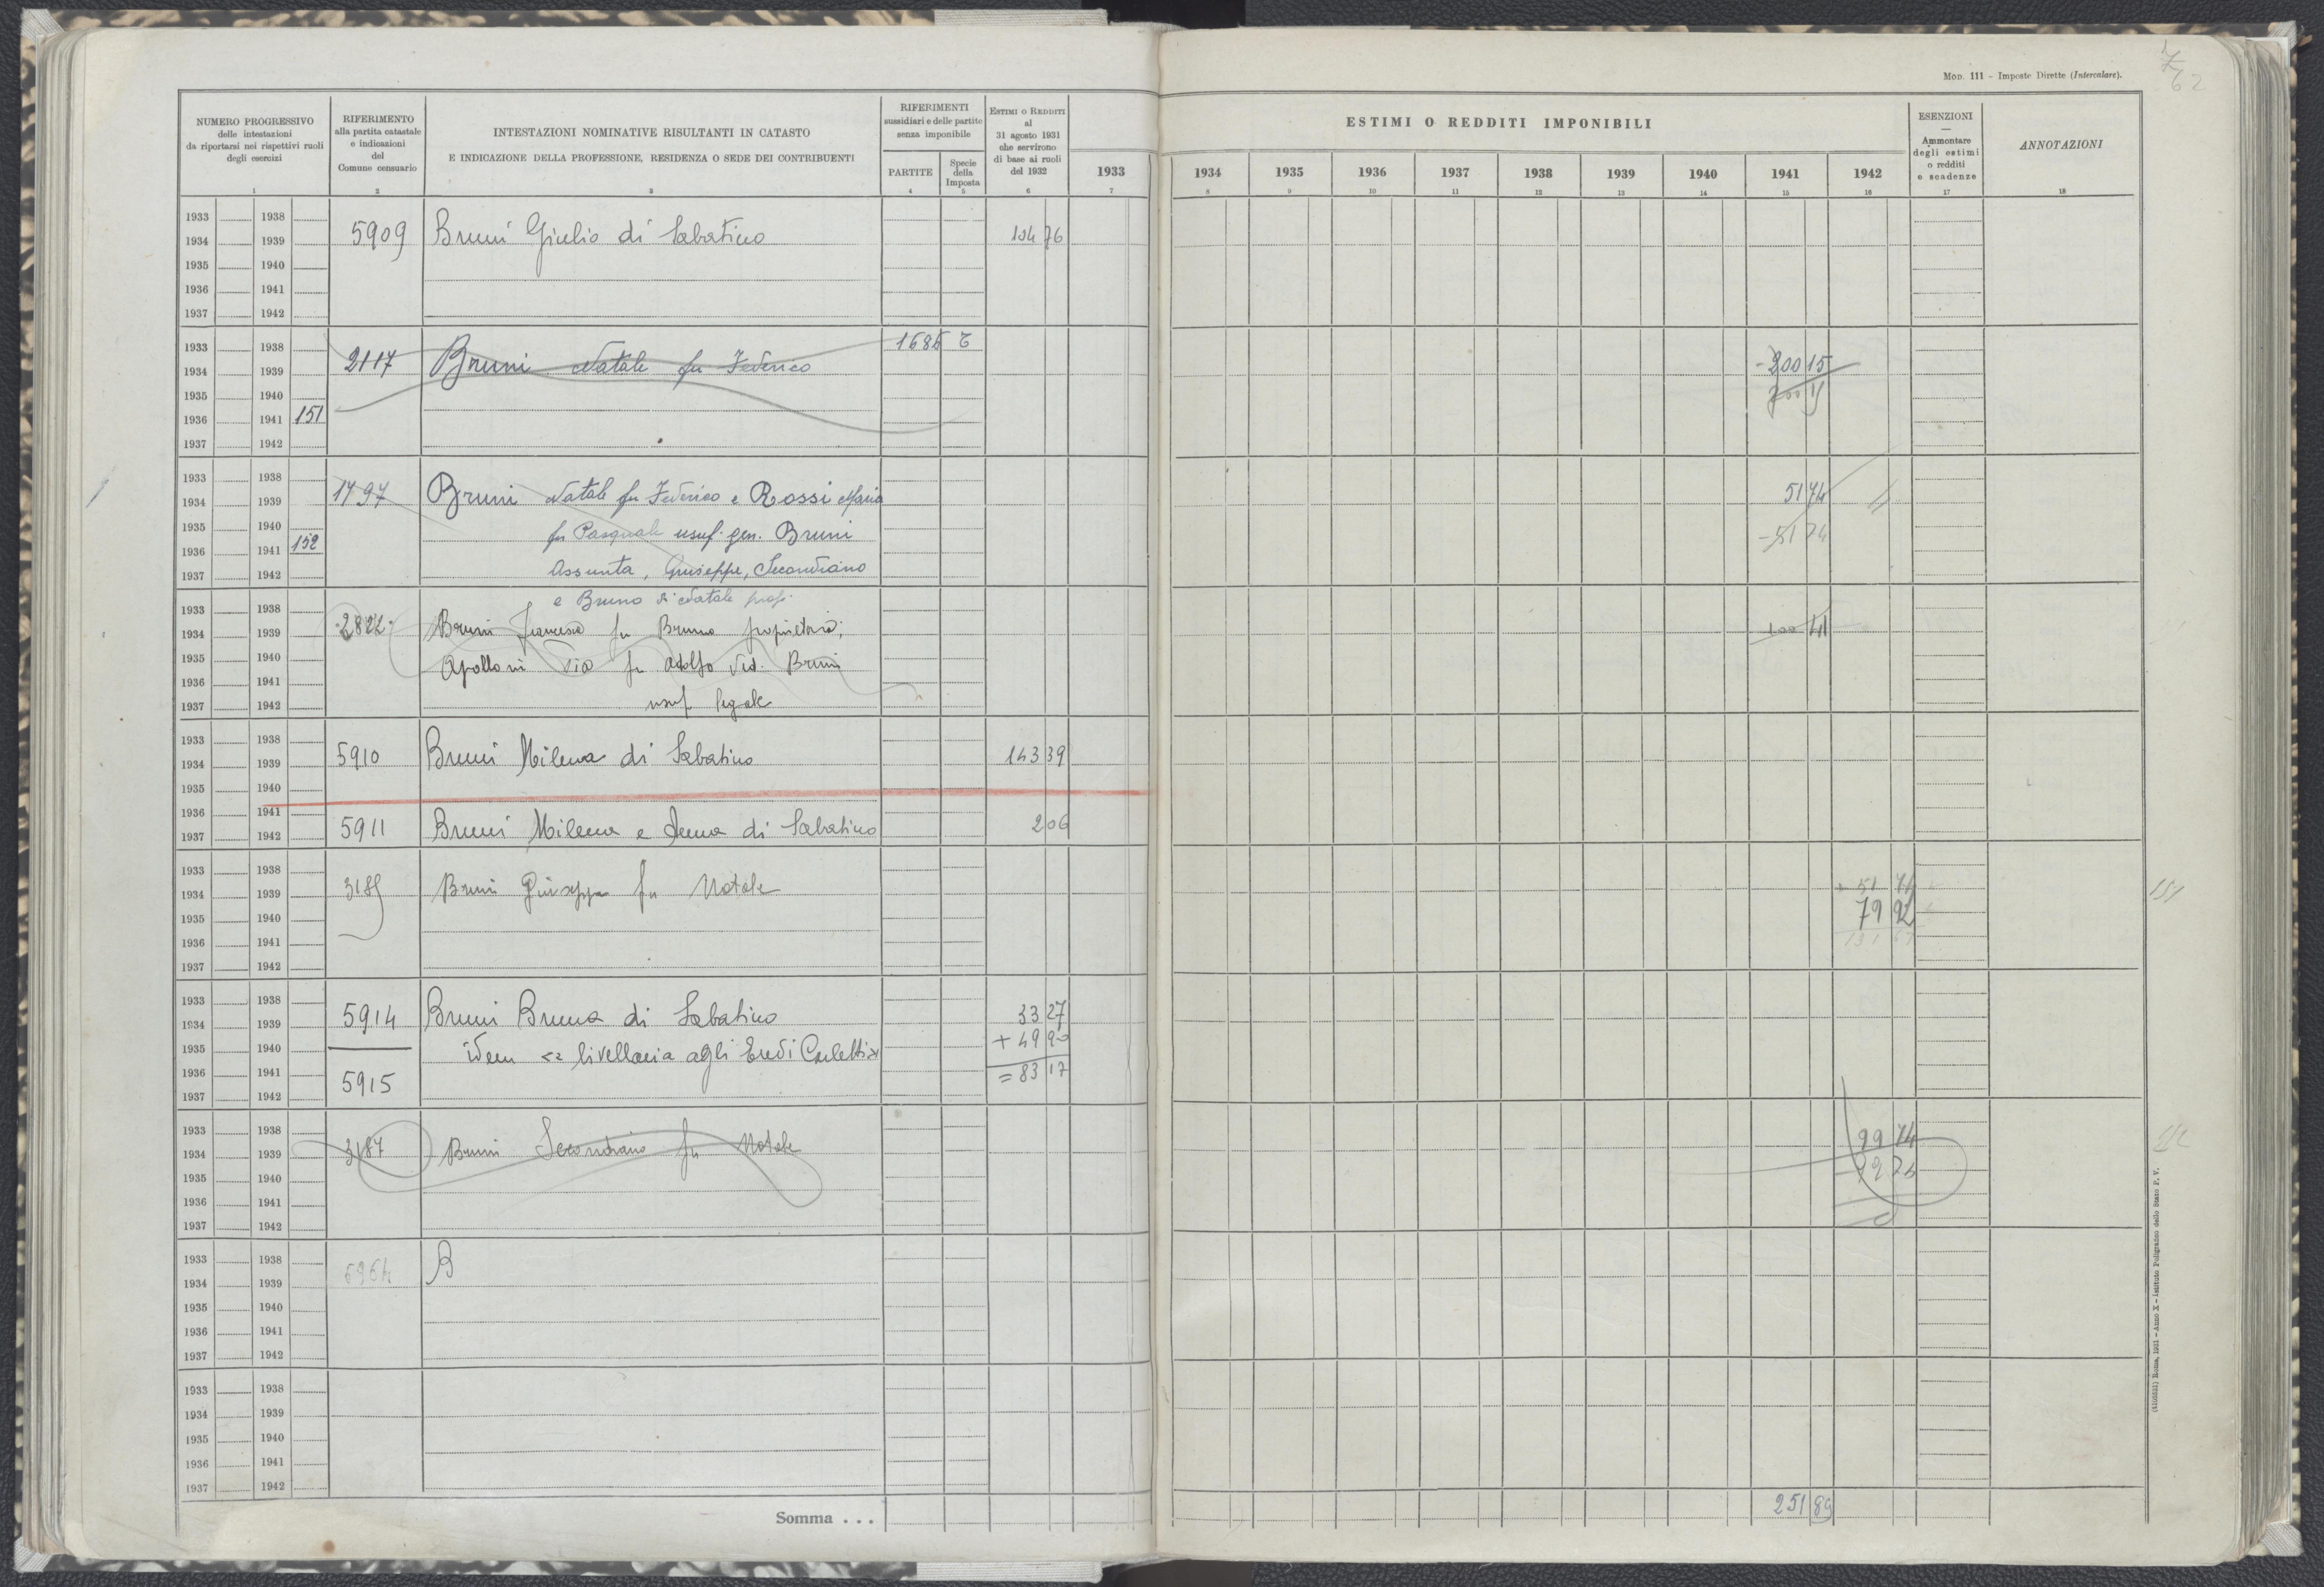 7
62
Mod. 111 – Imposte Dirette (Intercalare).
NUMERO PROGRESSIVO
delle intestazioni
da riportarsi nei rispettivi ruoli
degli esercizi
1
RIFERIMENTO
alla partita catastale
e indicazioni
del
Comune censuario
2
INTESTAZIONI NOMINATIVE RISULTANTI IN CATASTO
E INDICAZIONE DELLA PROFESSIONE, RESIDENZA O SEDE DEI CONTRIBUENTI
3
RIFERIMENTI
sussidiari e delle partite
senza imponibile
PARTITE
4
Specie
della
Imposta
5
Estimi o Redditi
al
31 agosto 1931
che servirono
di base ai ruoli
del 1932
6
1933
7
ESTIMI O REDDITI IMPONIBILI
1934 1935 1936 1937 1938 1939 1940 1941 1942
8 9 10 11 12 13 14 15 16
ESENZIONI
—
Ammontare
degli estimi
o redditi
e scadenze
17
ANNOTAZIONI
18
1933 1938
1934 1939 5909 Bruni Giulio di Sabatino 104 76
1935 1940
1936 1941
1937 1942
1933 1938 1686 T
1934 1939 2117 Bruni Natale fu Federico - 200 15
1935 1940 200 15
1936 1941 151
1937 1942
1933 1938
1934 1939 1797 Bruni Natale fu Federico e Rossi Maria 51 74
1935 1940 fu Pasquale usuf. gen. Bruni - 51 74
1936 1941 152
1937 1942 Assunta, Giuseppe, Secondiano
e Bruno di Natale prop.
1933 1938
1934 1939 2822 Bruni Francesca fu Bruno proprietaria;
1935 1940 Apolloni Pia fu Adolfo ved. Bruni
1936 1941
1937 1942 usuf legale
1933 1938
1934 1939 5910 Bruni Milena di Sabatino 143 39
1935 1940
1936 1941
1937 1942 5911 Bruni Milena e Anna di Sabatino 2 06
1933 1938
1934 1939 3189 Bruni Giuseppe fu Natale + 51 74 151
1935 1940 79 92
1936 1941 131 67
1937 1942
1933 1938
1934 1939 5914 Bruni Bruna di Sabatino 33 27
1935 1940 idem livellaria agli Eredi + 49 90
1936 1941 5915 = 83 17
1937 1942
1933 1938
1934 1939 3187 Bruni Secondiano fu Natale 99 74
1935 1940
1936 1941
1937 1942
1933 1938 B
1934 1939
1935 1940
1936 1941
1937 1942
1933 1938
1934 1939
1935 1940
1936 1941
1937 1942
Somma . . . 251 89
Roma, 1931 – Anno X – Istituto Poligrafico dello Stato P. V.